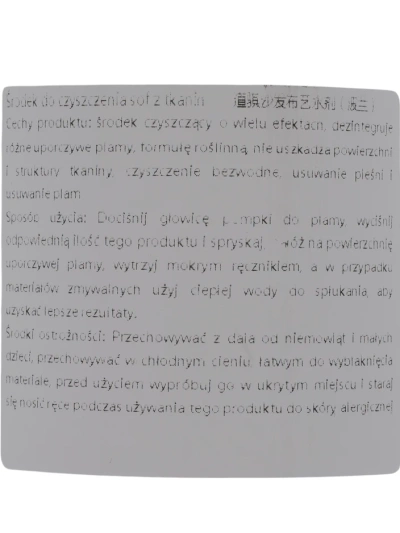 Środek do czyszczenia sof z tkanin 道顿沙发布艺水剂（波兰）
Cechy produktu: środek czyszczący o wielu efektach, dezintegruje
różne uporczywe plamy, formułę roślinną, nie uszkadza powierzchni
i struktury tkaniny, czyszczenie bezwodne, usuwanie pleśni i
usuwanie plam
Sposób użycia: Dociśnij głowicę pompki do plamy, wyciśnij
odpowiednią ilość tego produktu i spryskaj, nałóż na powierzchnię
uporczywej plamy, wytrzyj mokrym ręcznikiem, a w przypadku
materiałów zmywalnych użyj ciepłej wody do spłukania, aby
uzyskać lepsze rezultaty.
Środki ostrożności: Przechowywać z dala od niemowląt i małych
dzieci, przechowywać w chłodnym cieniu, łatwym do wyblaknięcia
materiale, przed użyciem wypróbuj go w ukrytym miejscu i staraj
się nosić ręce podczas używania tego produktu do skóry alergicznej